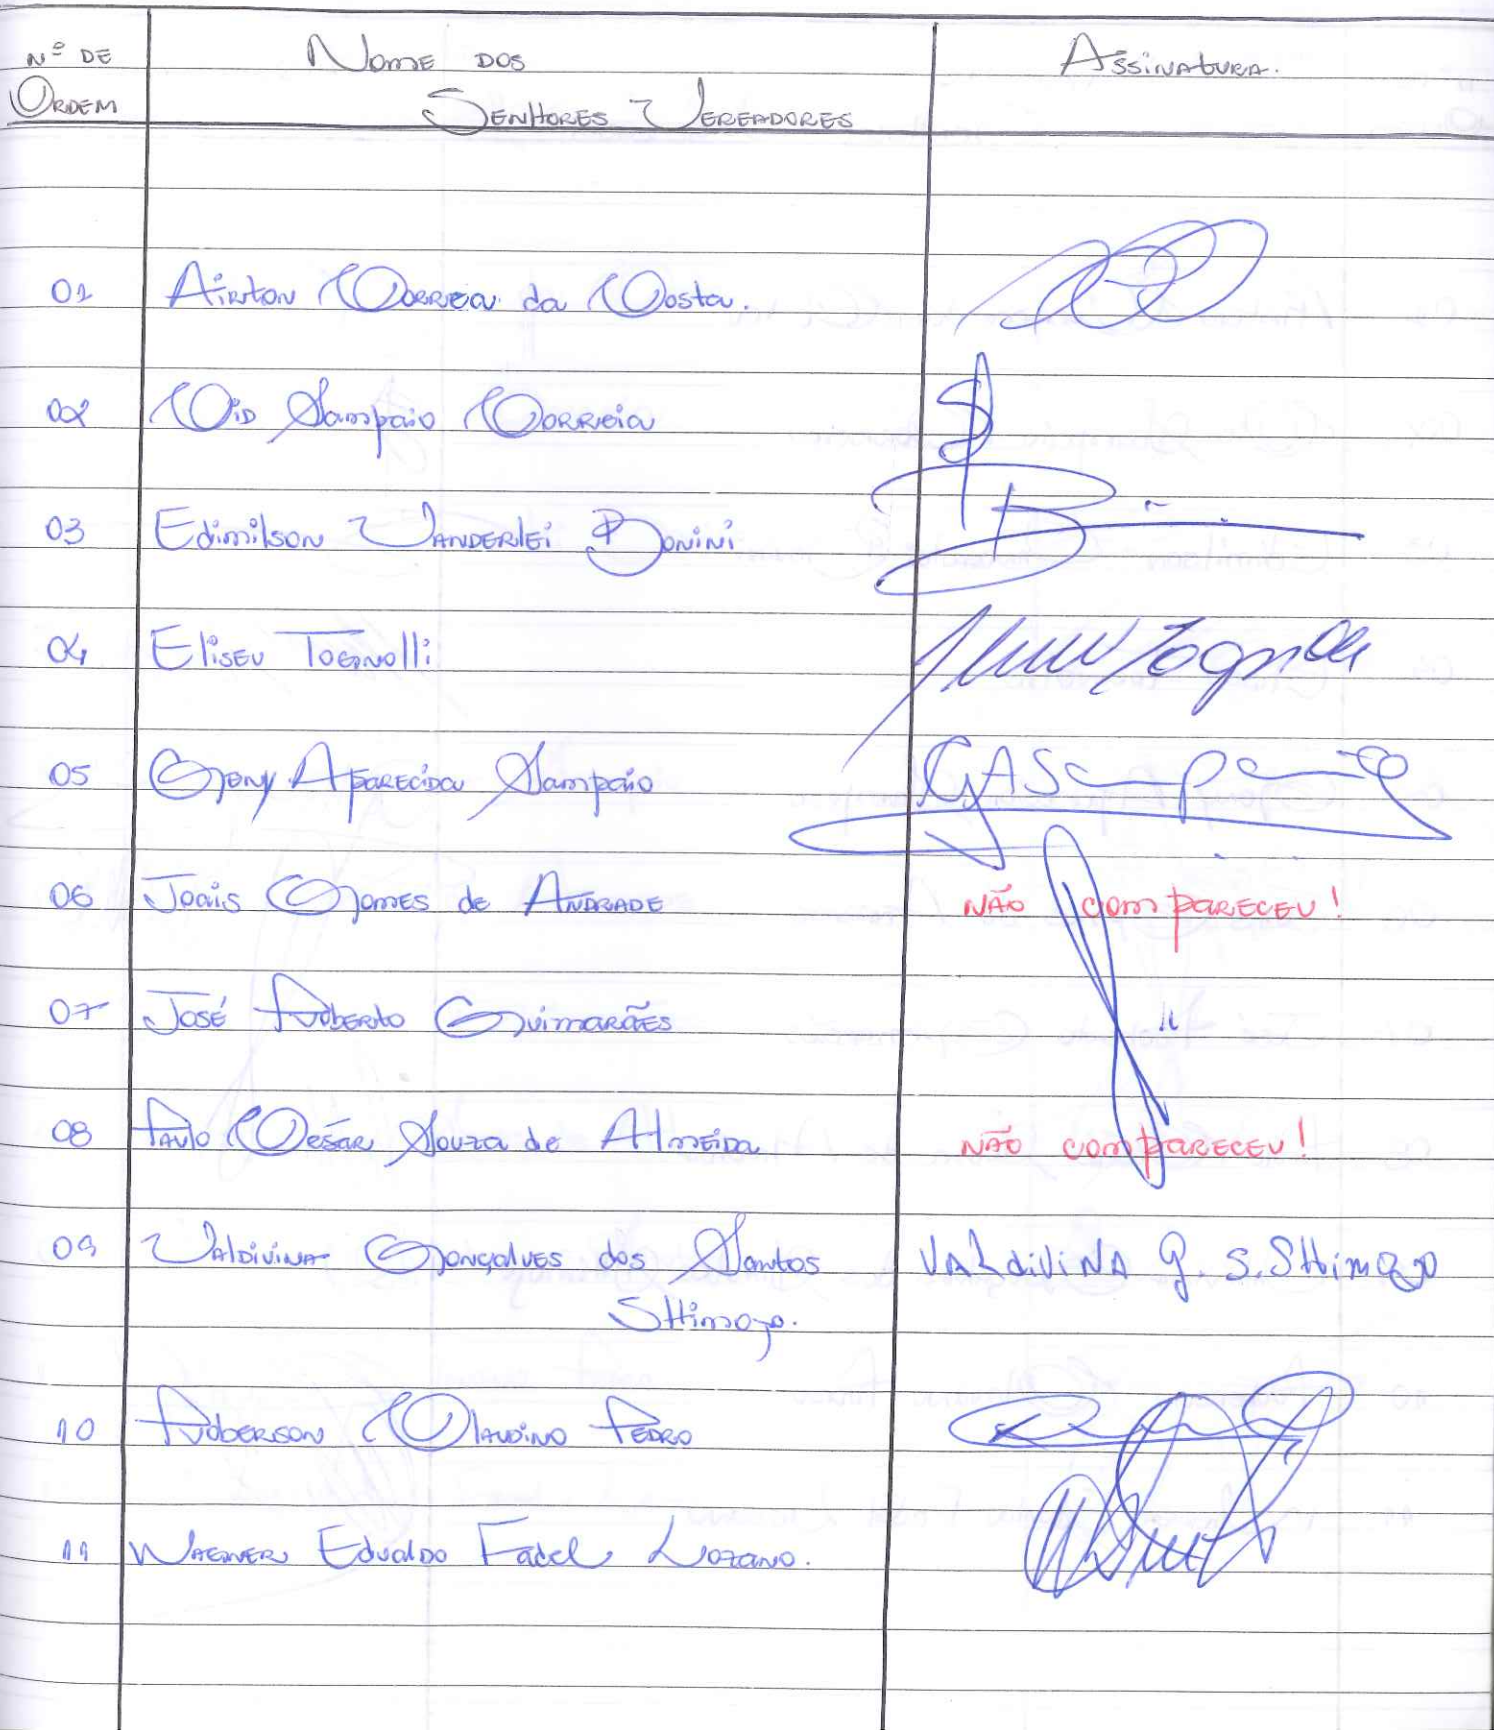 Nº DE Nome DOS Assinatura.
Ordem Senhores Vereadores
01 Airton Correa da Costa.
02 Cid Sampaio Correia
03 Edimilson Vanderlei Bonini
04 Eliseu Tognolli Tognolli
05 Geny Aparecida Sampaio GASampaio
06 Joais Gomes de Andrade NÃO compareceu!
07 José Roberto Guimarães
08 Paulo César Souza de Almeida NÃO compareceu!
09 Valdivina Gonçalves dos Santos VALdiViNA G. S. SHimozo
SHimozo.
10 Roberson Claudino Pedro
11 Wagner Edualdo Fadel Lozano.